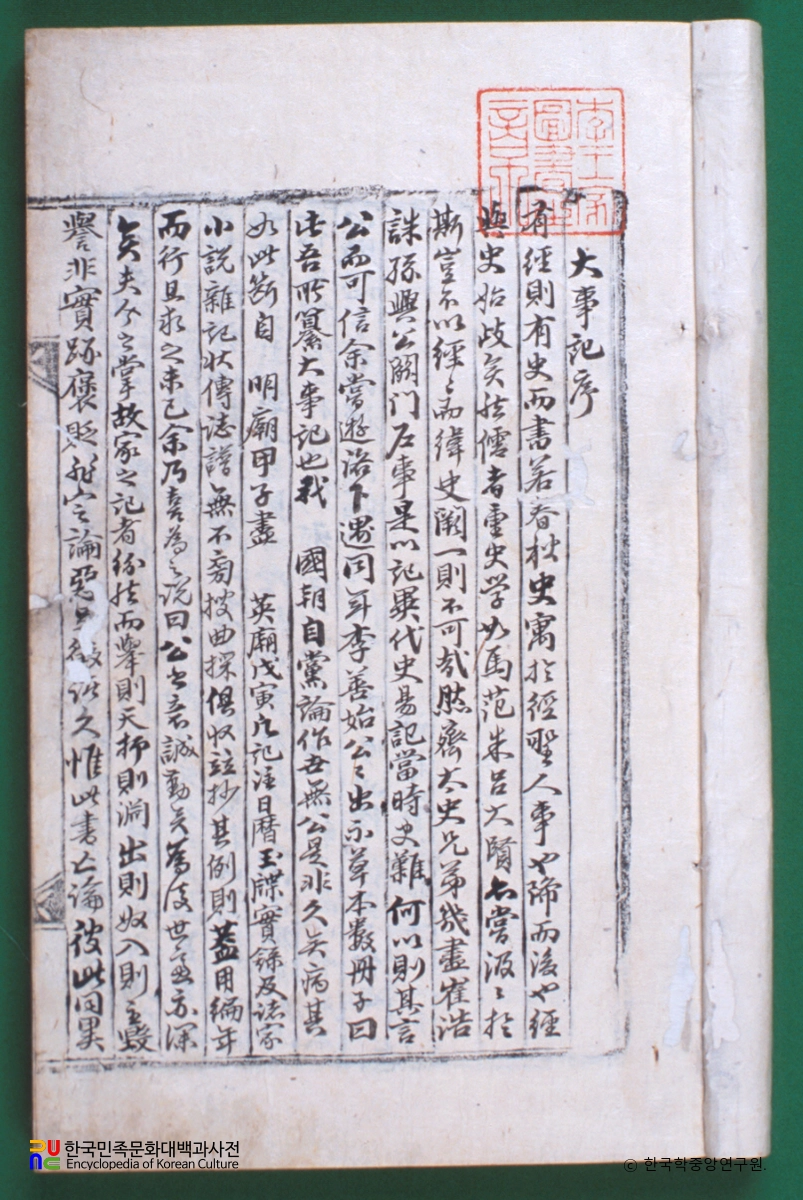 李王家圖書之章
大事記序
有經則有史而書若春秋史寓於經聖人事也降而後也經
與史始歧矣然儒者重史学如馬范朱呂大賢亦嘗汲〻於
斯豈不以經〻而緯史闕一則不可哉然齊太史兄弟幾盡崔浩
誅孫興公闔门后事是以記異代史易記當時史難何以則其言
公而可信余嘗遊洛下遇同年李善始公〻出示草本數冊子曰
此吾所纂大事記也我 國朝自黨論作世無公是非久矣病其
如此斷自 明廟甲子盡 英廟戊寅凡記注日曆玉牒實錄及諸家
小說雜記狀傳誌譜無不旁搜曲採俱收竝抄其例則蓋用編年
而行且求之未已余乃喜為之說曰公之意誠勤矣為後世盖亦深
矣夫今之掌故家之記者紛然而擧則天抑則淵出則奴入則主毁
譽非實跡褒貶非定論惡 久惟此書亡論彼此同異
한국민족문화대백과사전
Encyclopedia of Korean Culture
© 한국학중앙연구원.